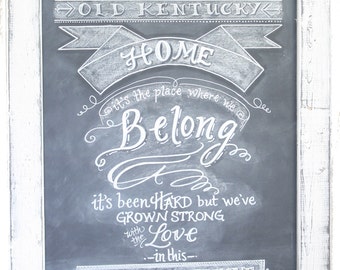 OLD KENTUCKY
HOME
it's the place where we
Belong
it's been HARD but we've
GROWN STRONG
with the Love
in this